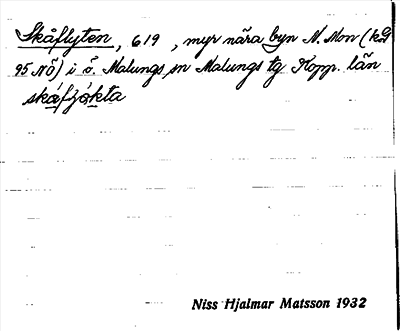 Skåflyten, 619, myr nära byn N. Mon (kbl
95 NÖ) i ö. Malungs sn Malungs tg Kopp. län
skáfjókta
Niss Hjalmar Matsson 1932